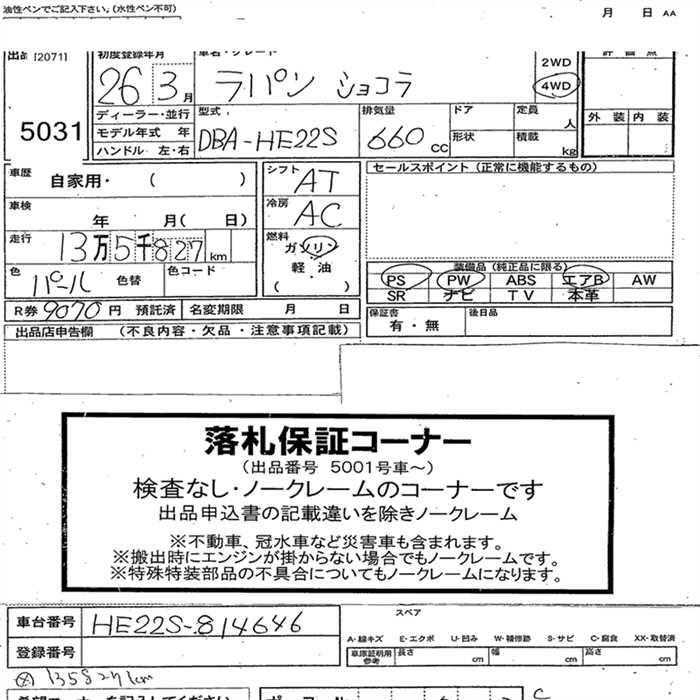 油性ペンでご記入下さい。(水性ペン不可)
月 日 AA
出品 [2071]
初度登録年月
車名・グレード
5031
26 3月
ラパン ショコラ
2WD
4WD
評価点
外装 内装
ディーラー・並行
モデル年式 年
ハンドル 左・右
型式
DBA-HE22S
排気量
660cc
ドア
形状
定員
人
積載
kg
車歴
自家用・( )
シフト
AT
セールスポイント (正常に機能するもの)
車検
年 月( 日)
冷房
AC
走行
13万5千827km
燃料
ガソリン
軽油
( )
色
パール
色替
色コード
装備品 (純正品に限る)
PS PW ABS エアB AW
SR ナビ TV 本革
R券 9070円 預託済
名変期限 月 日
保証書
有・無
後日品
出品店申告欄 (不良内容・欠品・注意事項記載)
落札保証コーナー
(出品番号 5001号車～)
検査なし・ノークレームのコーナーです
出品申込書の記載違いを除きノークレーム
※不動車、冠水車など災害車も含まれます。
※搬出時にエンジンが掛からない場合でもノークレームです。
※特殊特装部品の不具合についてもノークレームになります。
車台番号
HE22S-814646
登録番号
スペア
A-線キズ E-エクボ U-凹み W-補修跡 S-サビ C-腐食 XX-取替済
車庫証明用
参考
長さ cm
幅 cm
高さ cm
135827km
希望コーナーを記入してください